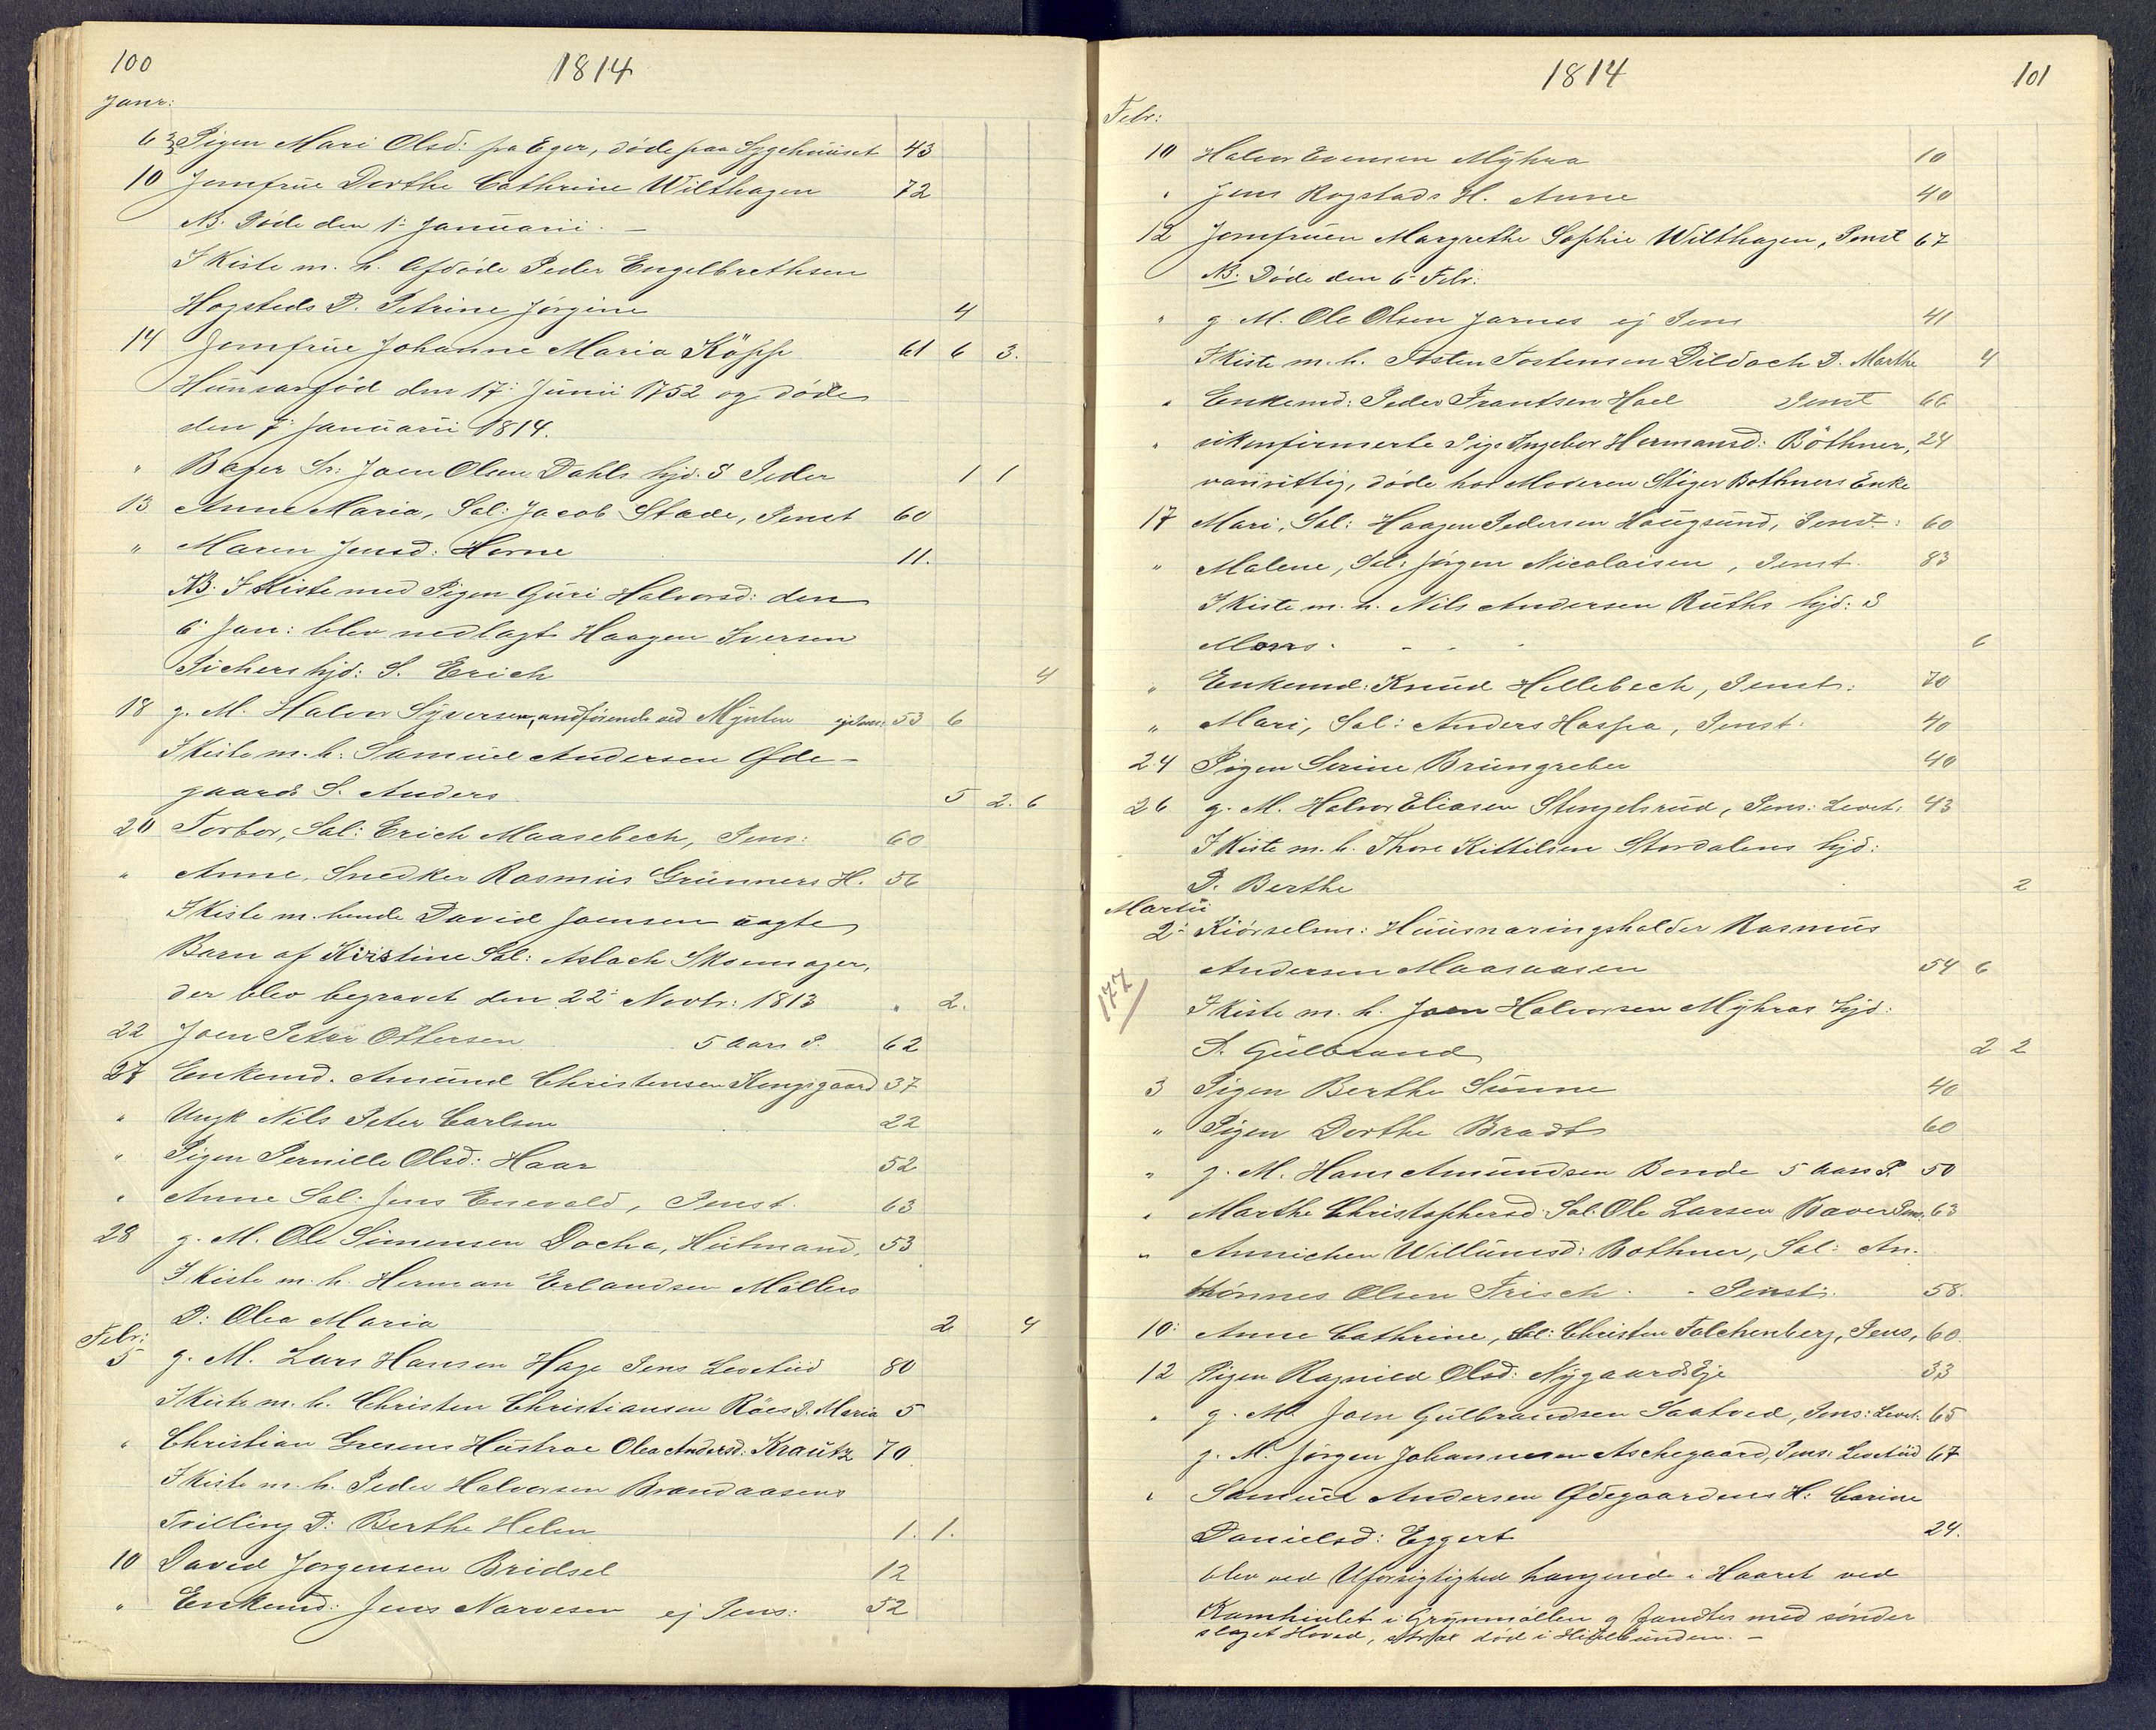 100
1814
Janr:
6 Pigen Mari Olsd: fra Eger, døde paa Sygehuuset 43
10 Jomfrue Dorthe Cathrine Wilthagen 72
NB. Døde den 1: Januarii. –
I Kiste m. h. Afdøde Peder Engelbrethsen
Hogsteds D. Petrine Jørgine 4
14 Jomfrue Johanne Maria Köpp 61 6 3.
Hun var fød den 17: Junii 1752 og døde
den 7: Januarii 1814.
" Bager Sr: Joen Olsen Dahls hjd: S Peder 1 1
13 Anne Maria, Sal: Jacob Stade, Penst 60
" Maren Jensd: Horne 11.
NB. I Kiste med Pigen Guri Halvorsd: den
6: Jan: blev nedlagt Haagen Iversen
Pichers hjd: S. Erich 4
18 g. M. Halvor Syversen, andførende ved Mynten ej Pens: 53 6
I Kiste m. h: Samuel Andersen Øde-
gaards S. Anders 5 2. 6
20 Torbor, Sal: Erich Maasebech, Pens: 60
" Anne, Snedker Rasmus Grünners H. 56
I Kiste m. hende David Joensen uægte
Barn af Kirstine Sal: Aslach Skoemager,
der blev begravet den 22: Novbr: 1813 2.
22 Joen Peter Ottersen 5 Aars P. 62
27 Enkemd. Amund Christensen Kongsgaard 37
" Ungk Nils Peter Carlsen 22
" Pigen Pernille Olsd: Haar 52
" Anne Sal: Jens Enevold, Penst. 63
28 g. M. Ole Simensen Docka, Hütmand, 53
I Kiste m. h. Herman Erlandsen Møllers
D: Olea Maria 2 4
Febr:
5 g. M. Lars Hansen Hage Pens Levetiid 80
I Kiste m. h. Christen Christiansen Röes D. Maria 5
" Christian Gresens Hustroe Olea Andersd: Krautz 70
I Kiste m. h. Peder Halvorsen Brandaasens
Tvilling D: Berthe Helen 1. 1.
10 David Jørgensen Bridsel 12
" Enkemd: Jens Narvesen ej Pens: 52
1814
101
Febr:
10 Halvor Evensen Myhra 10
" Jens Rogstads H. Anne 40
12 Jomfruen Margrethe Sophie Wilthagen, Penst 67
NB. Døde den 6: Febr:
" g. M. Ole Olsen Jarnes ej Pens 41
I Kiste m. h. Østen Tostensen Dildoch D. Marthe 4
" Enkemd: Peder Frantsen Hoel Penst 66
" ukonfirmerte Pige Ingebor Hermansd: Böthner, 24
vanvittig, døde hos Moderen Stiger Bothners Enke
17 Mari, Sal: Haagen Pedersen Hougsund, Penst: 60
" Malene, Sal: Jørgen Nicolaisen, Penst. 83
I Kiste m. h. Nils Andersen Ruths hjd: S
Mons. 6
" Enkemd: Knud Hellebech, Penst: 70
" Mari, Sal: Anders Haspa, Penst: 40
24 Pigen Serine Brüngreber 40
26 g. M. Halvor Eliasen Stengelsrud, Pens: Levet: 43
I Kiste m. h. Thore Kittilsen Stordalens hjd:
D. Berthe 2
Martii
2: Kiørselsm: Huusnæringsholder Rasmus
Andersen Maasaasen 54 6
177
I Kiste m. h. Joen Halvorsen Myhras hjd:
S. Gulbrand 2 2
3 Pigen Berthe Sünne 40
" Pigen Dorthe Bradt 60
" g. M. Hans Amundsen Bonde 5 Aars P. 50
" Marthe Christophersd: Sal: Ole Larsen Baver Pens. 63
" Annichen Willumsd: Bothner, Sal: An-
thönnes Olsen Frisch. Penst: 58.
10: Anne Cathrine, Sal: Christen Falchenberg, Pens, 60.
12 Pigen Ragnild Olsd: Nygaards Eje 33
" g. M. Joen Gulbrandsen Saatved, Pens: Levet: 65
g. M. Jørgen Johannesen Aschegaard, Pens: Levetiid 67
" Samuel Andersen Ødegaardens H: Carine
Danielsd: Eggert 24.
blev ved Uforsigtighed hangende i Haaret ved
Kamhiulet i Grynmøllen og fandtes med sønder
slaget Hoved, død i Hiulbunden. –